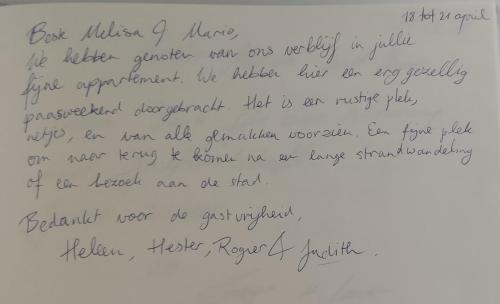 18 tot 21 april
Beste Melisa & Mario,
We hebben genoten van ons verblijf in jullie
fijne appartement. We hebben hier een erg gezellig
paasweekend doorgebracht. Het is een rustige plek,
netjes, en van alle gemakken voorzien. Een fijne plek
om naar terug te komen na een lange strandwandeling
of een bezoek aan de stad.
Bedankt voor de gastvrijheid,
Heleen, Hester, Rogier & Judith.